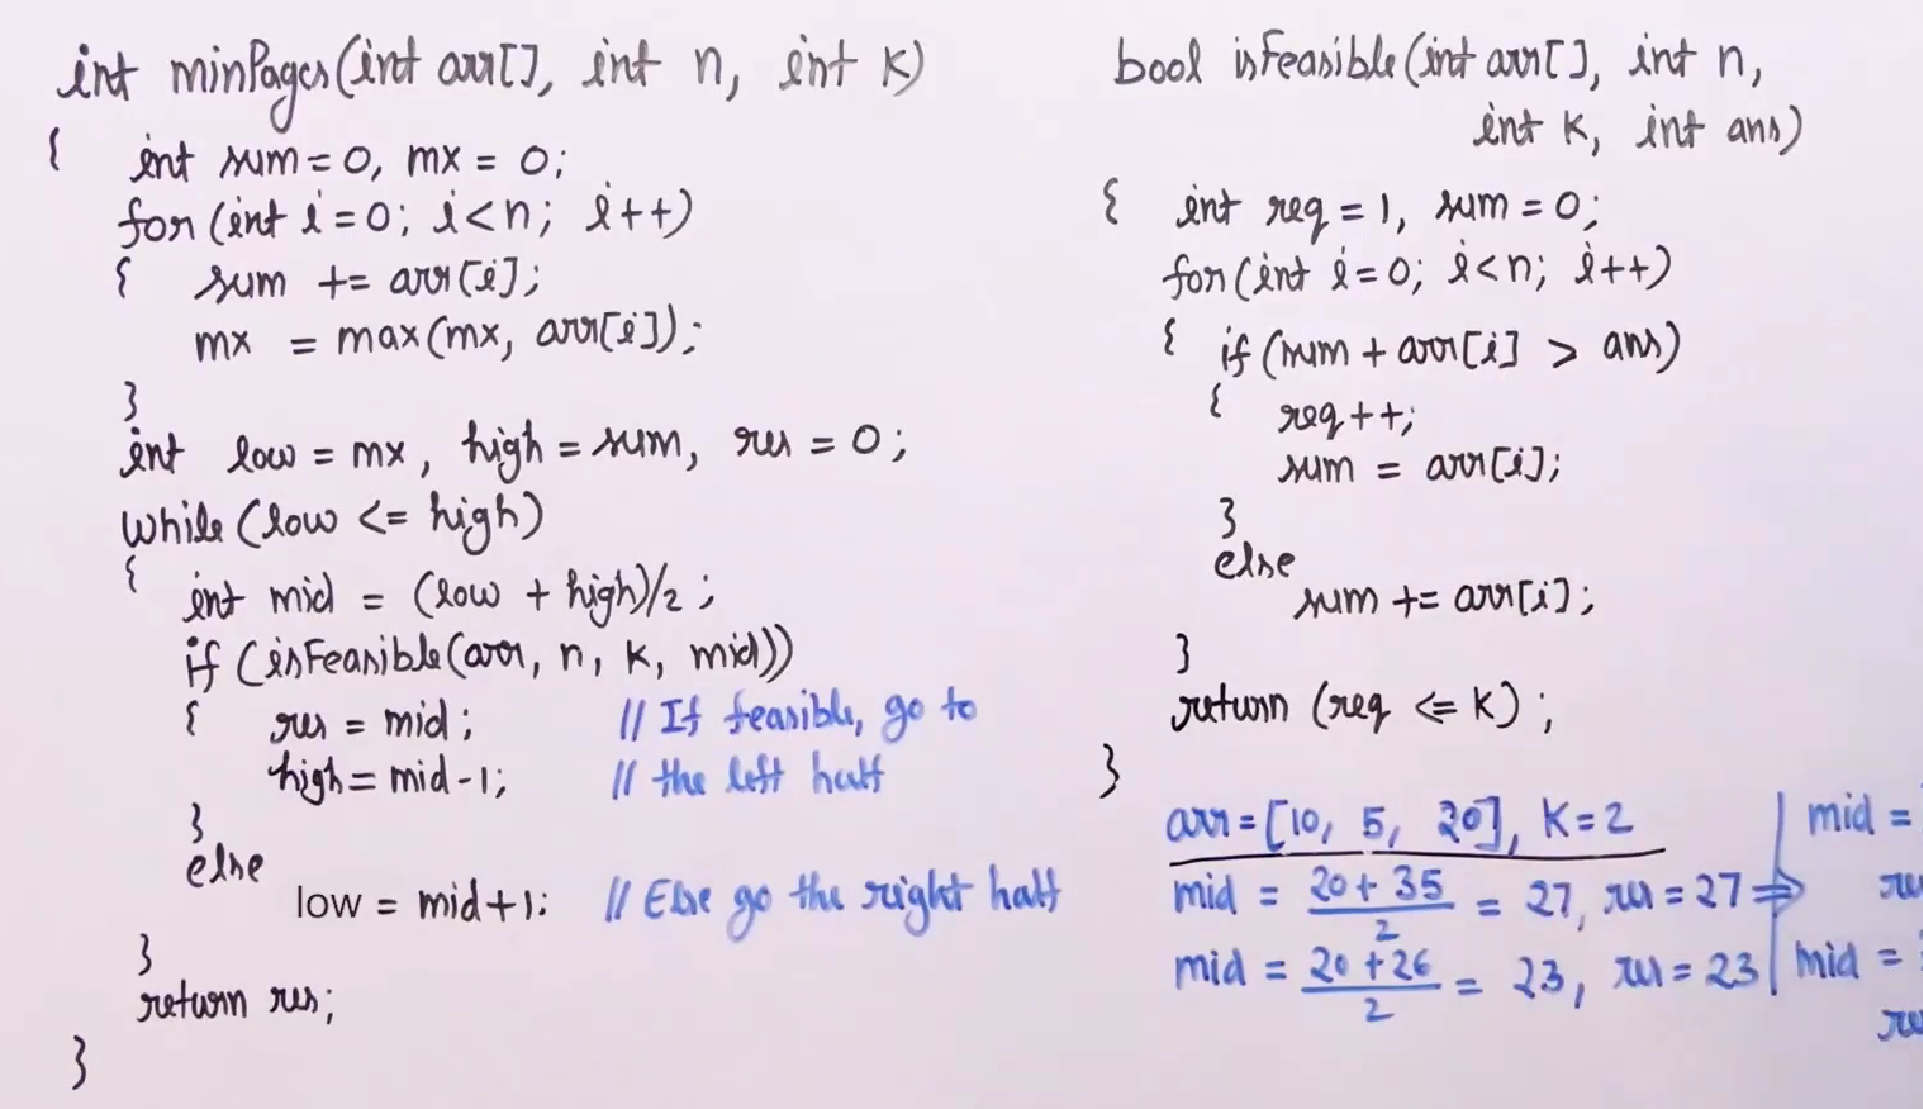 int minPages(int arr[], int n, int k)
{ int sum = 0, mx = 0;
for (int i = 0; i < n; i++)
{ sum += arr[i];
mx = max(mx, arr[i]);
}
int low = mx, high = sum, res = 0;
while (low <= high)
{
int mid = (low + high)/2;
if (isFeasible(arr, n, k, mid))
{ res = mid; // If feasible, go to
high = mid-1; // the left half
}
else
low = mid+1; // Else go the right half
}
return res;
}
bool isFeasible(int arr[], int n,
int k, int ans)
{ int req = 1, sum = 0;
for (int i = 0; i < n; i++)
{ if (sum + arr[i] > ans)
{ req++;
sum = arr[i];
}
else
sum += arr[i];
}
return (req <= k);
}
arr = [10, 5, 20], K = 2
mid = 20 + 35 / 2 = 27, res = 27 ⇒
mid = 20 + 26 / 2 = 23, res = 23
mid =
mid =